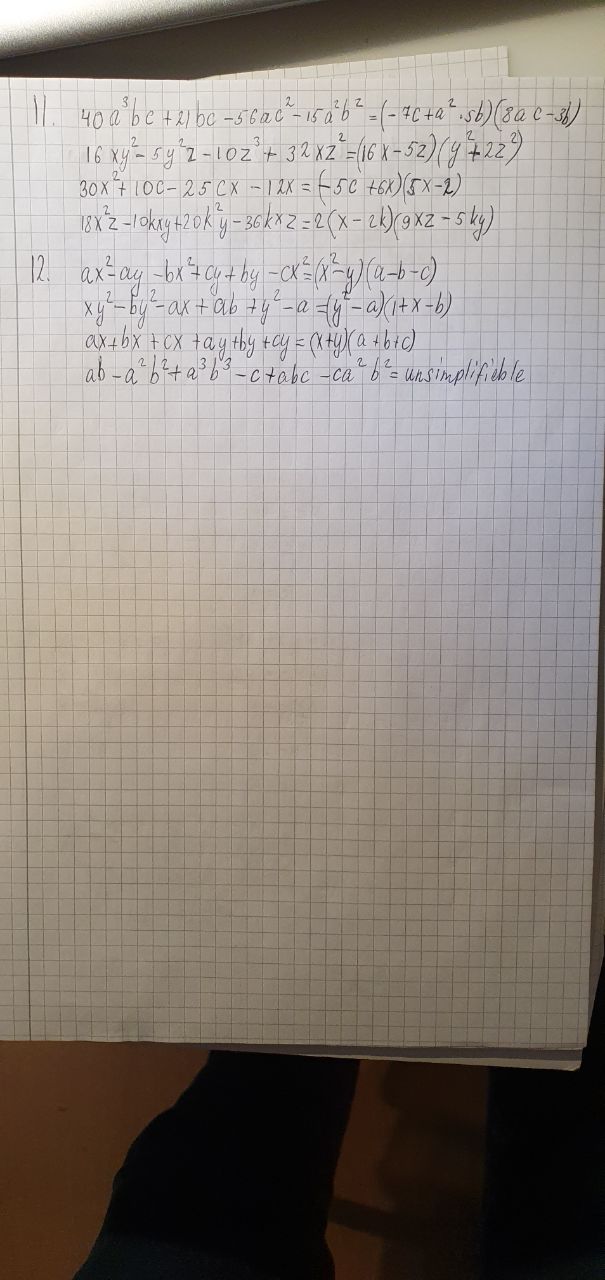 11. 40a³bc + 21bc - 56ac² - 15a²b² = (-7c + a² · 5b)(8ac - 3b)
16xy² - 5y²z - 10z³ + 32xz² = (16x - 5z)(y² + 2z²)
30x² + 10c - 25cx - 12x = (-5c + 6x)(5x - 2)
18x²z - 10kxy + 20k²y - 36kxz = 2(x - 2k)(9xz - 5ky)
12. ax² - ay - bx² + cy + by - cx² = (x² - y)(a - b - c)
xy² - by² - ax + ab + y² - a = (y² - a)(1 + x - b)
ax + bx + cx + ay + by + cy = (x + y)(a + b + c)
ab - a²b² + a³b³ - c + abc - ca²b² = unsimplifieble